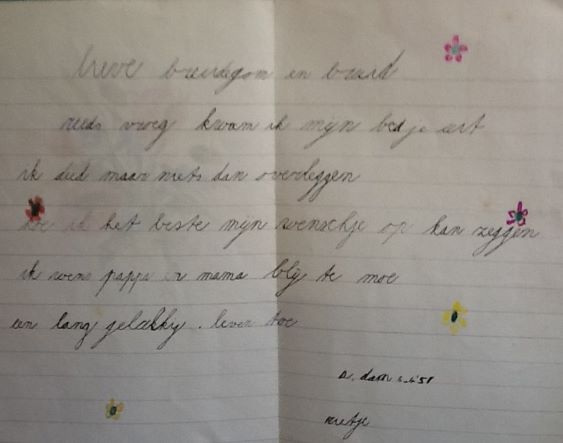 lieve bruidegom en bruid
reeds vroeg kwam ik mijn bedje uit
ik deed maar niets dan overleggen
hoe ik het beste mijn wenschje op kan zeggen
ik wens pappa en mama blij te moe
een lang gelukkig leven toe
A. dam